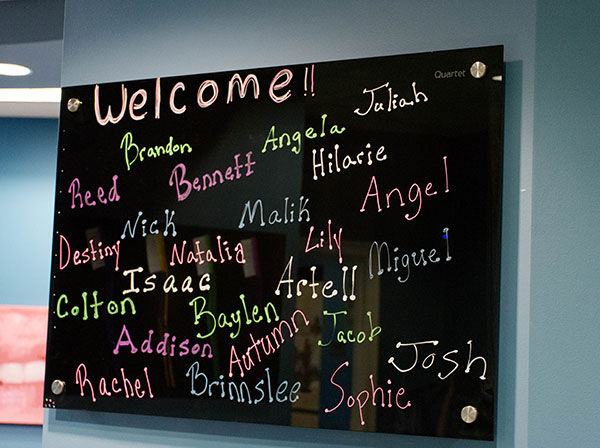 Quartet
Welcome!!
Juliah
Brandon
Angela
Hilarie
Reed
Bennett
Angel
Nick
Malik
Destiny
Natalia
Lily
Miguel
Isaac
Artell
Colton
Baylen
Jacob
Addison
Autumn
Josh
Rachel
Brimslee
Sophie